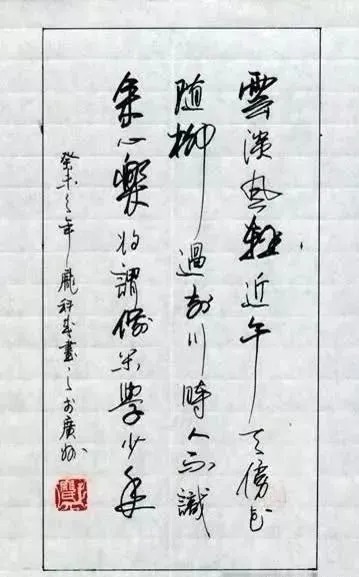 雲淡風輕近午天傍花
隨柳過前川時人不識
余心樂將謂偷閑學少年
癸未之年龐科書於廣州